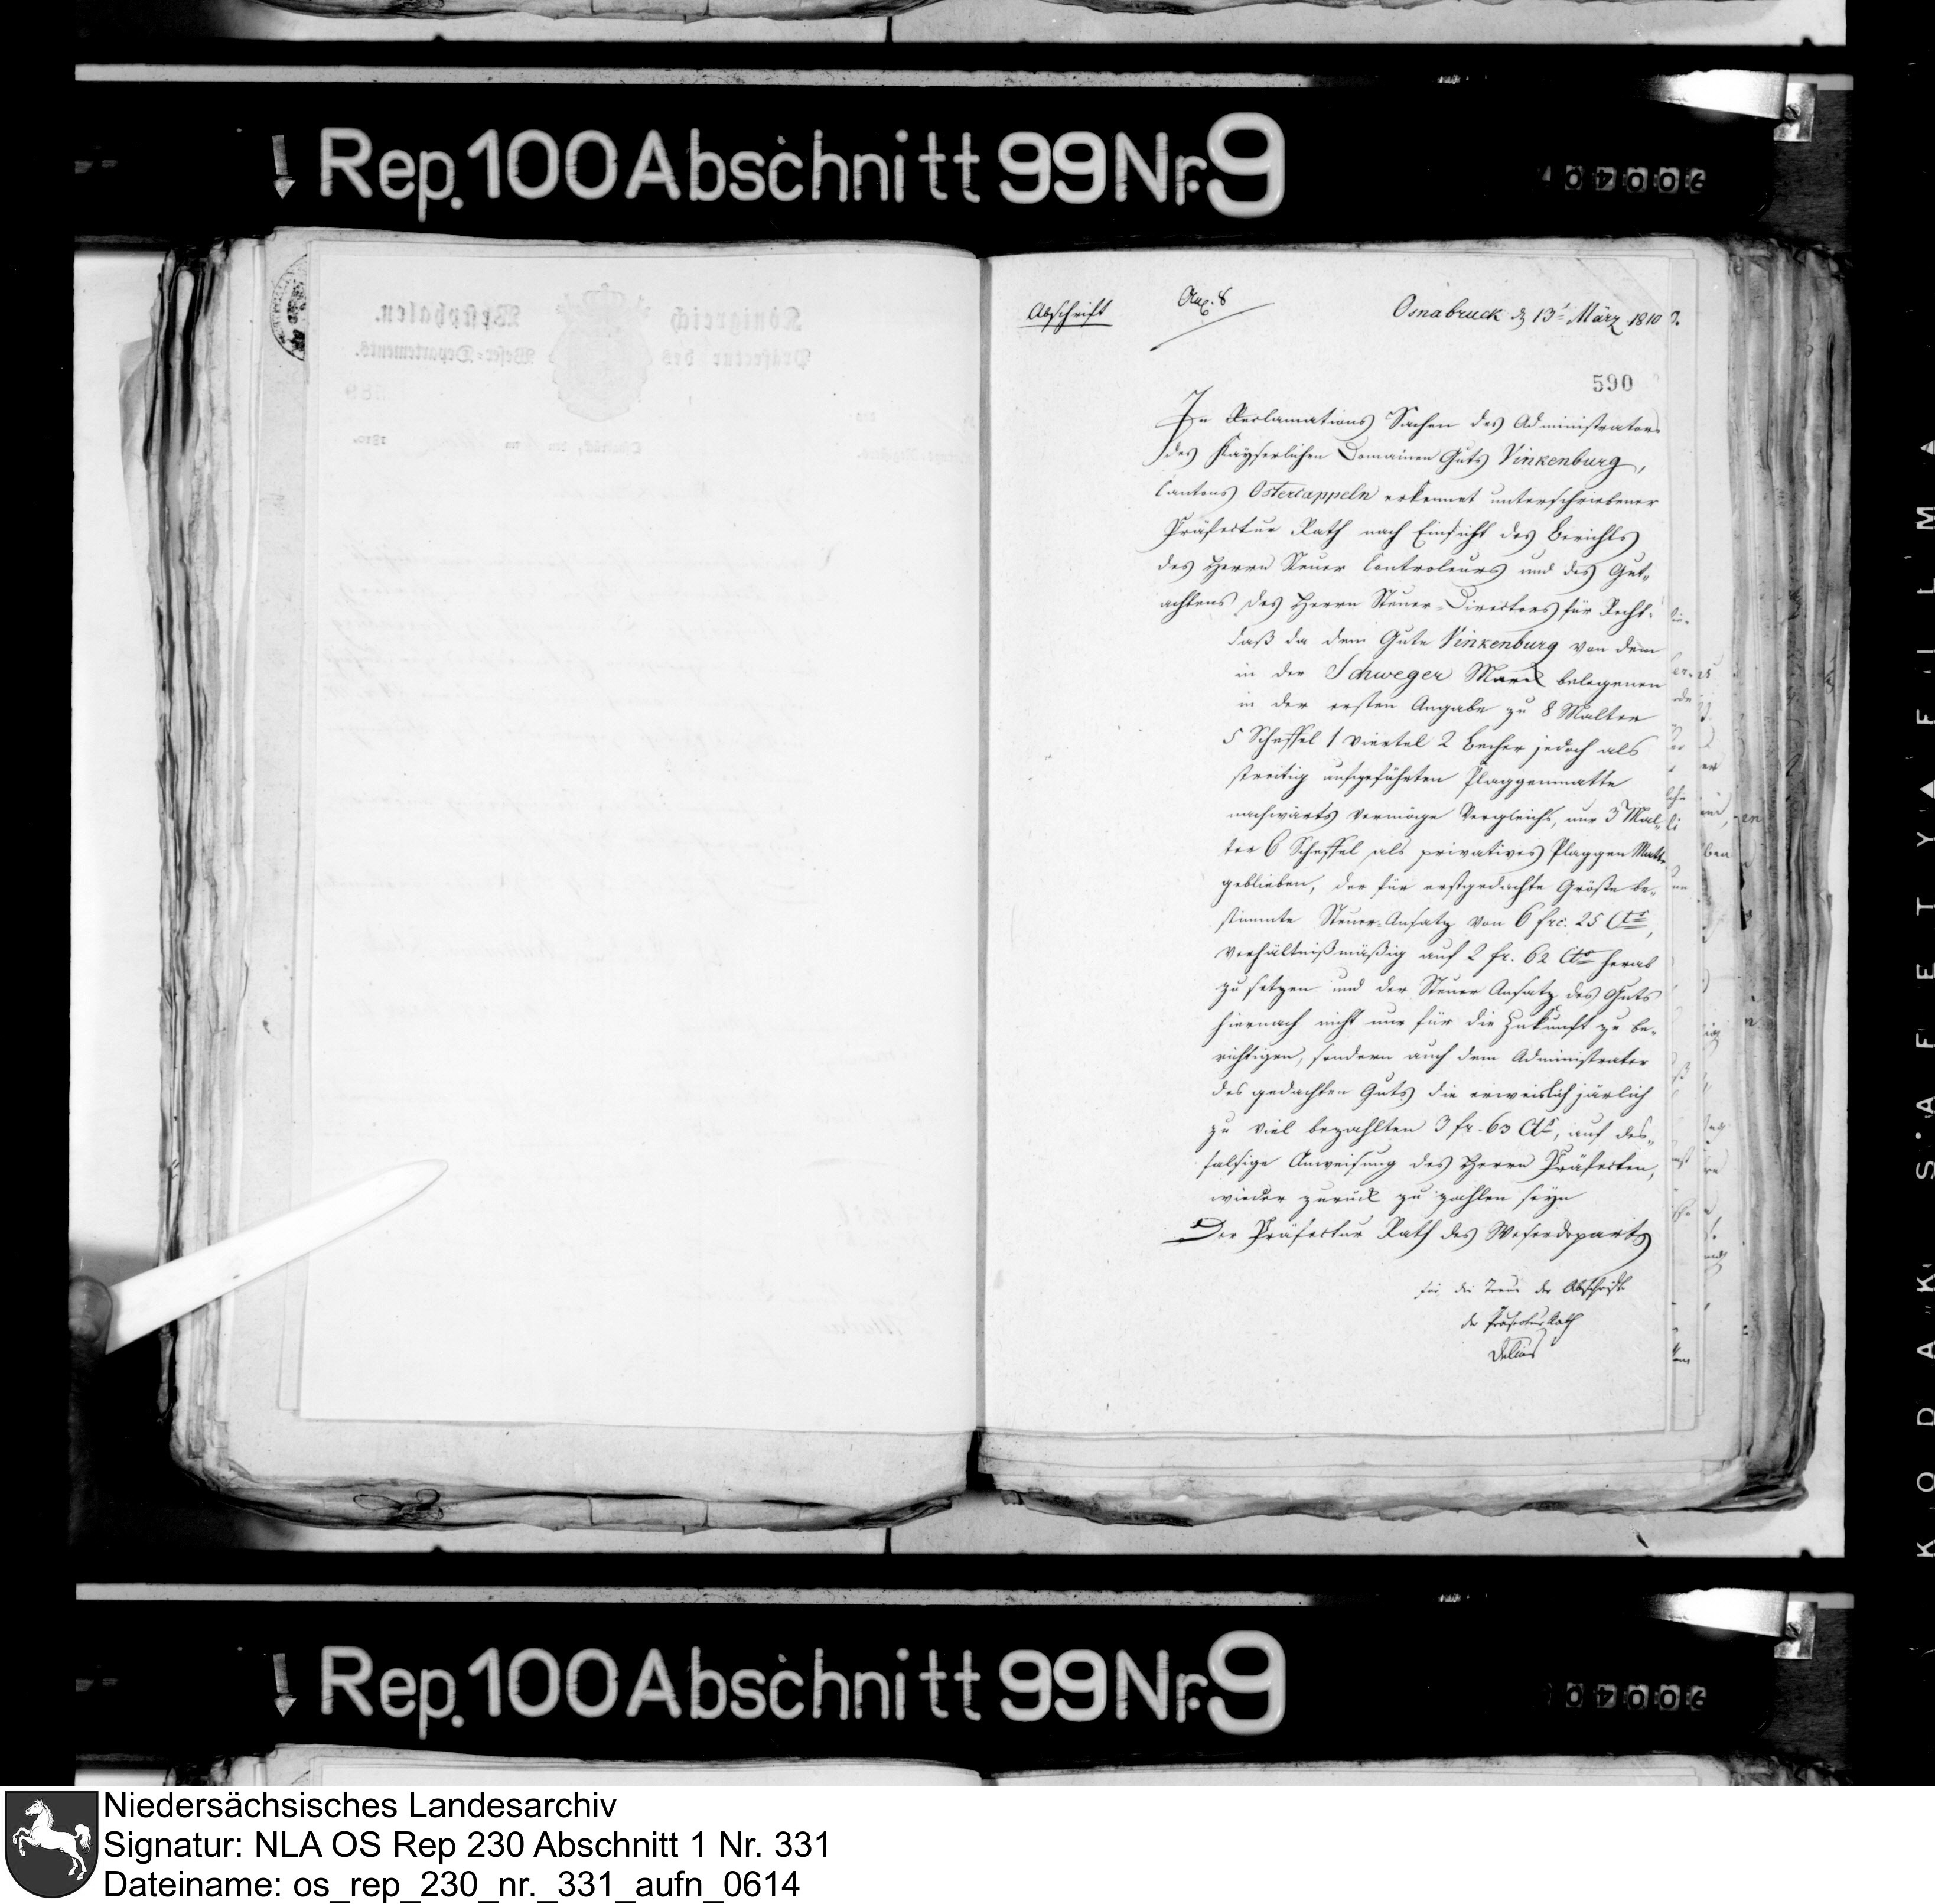 Rep. 100 Abschnitt 99 Nr. 9
Abschrift
Anl. 8
Osnabruck d 13t März 1810
590
In Reclamations Sachen des Administrators
des Kayserlichen Domainen Guts Vinkenburg,
Cantons Ostercappeln erkennet unterschriebener
Präfectur Rath nach Einsicht des Berichts
des Herrn Steuer Controleurs und des Gut-
achtens des Herrn Steuer-Directors für Recht:
daß da dem Gute Vinkenburg von dem
in der Schweger Mark belegenen
in der ersten Angabe zu 8 Malter
5 Scheffel 1 Viertel 2 Becher jedoch als
streitig aufgeführten Plaggenmatte
nachwärts vermöge Vergleichs, nur 3 Mal-
ter 6 Scheffel als privatives Plaggen Matte
geblieben, der für erstgedachte Größe be-
stimmte Steuer-Ansatz von 6 frc. 25 Cts,
verhältnißmäßig auf 2 fr. 62 Cts herab
zu setzen und der Steuer Ansatz des Guts
hiernach nicht nur für die Zukunft zu be-
richtigen, sondern auch dem Administrator
des gedachten Guts die erweislich järlich
zu viel bezahlten 3 fr. 63 Cts, auf des-
falsige Anweisung des Herrn Präfecten,
wieder zurück zu zahlen seyn
Der Präfectur Rath des Weserdeparts
für die Treue der Abschrift
der Präfectur Rath
Delius
Königreich Westphalen.
Präfectur des Weser-Departements.
Rep. 100 Abschnitt 99 Nr. 9
KODAK SAFETY FILM
Niedersächsisches Landesarchiv
Signatur: NLA OS Rep 230 Abschnitt 1 Nr. 331
Dateiname: os_rep_230_nr._331_aufn_0614